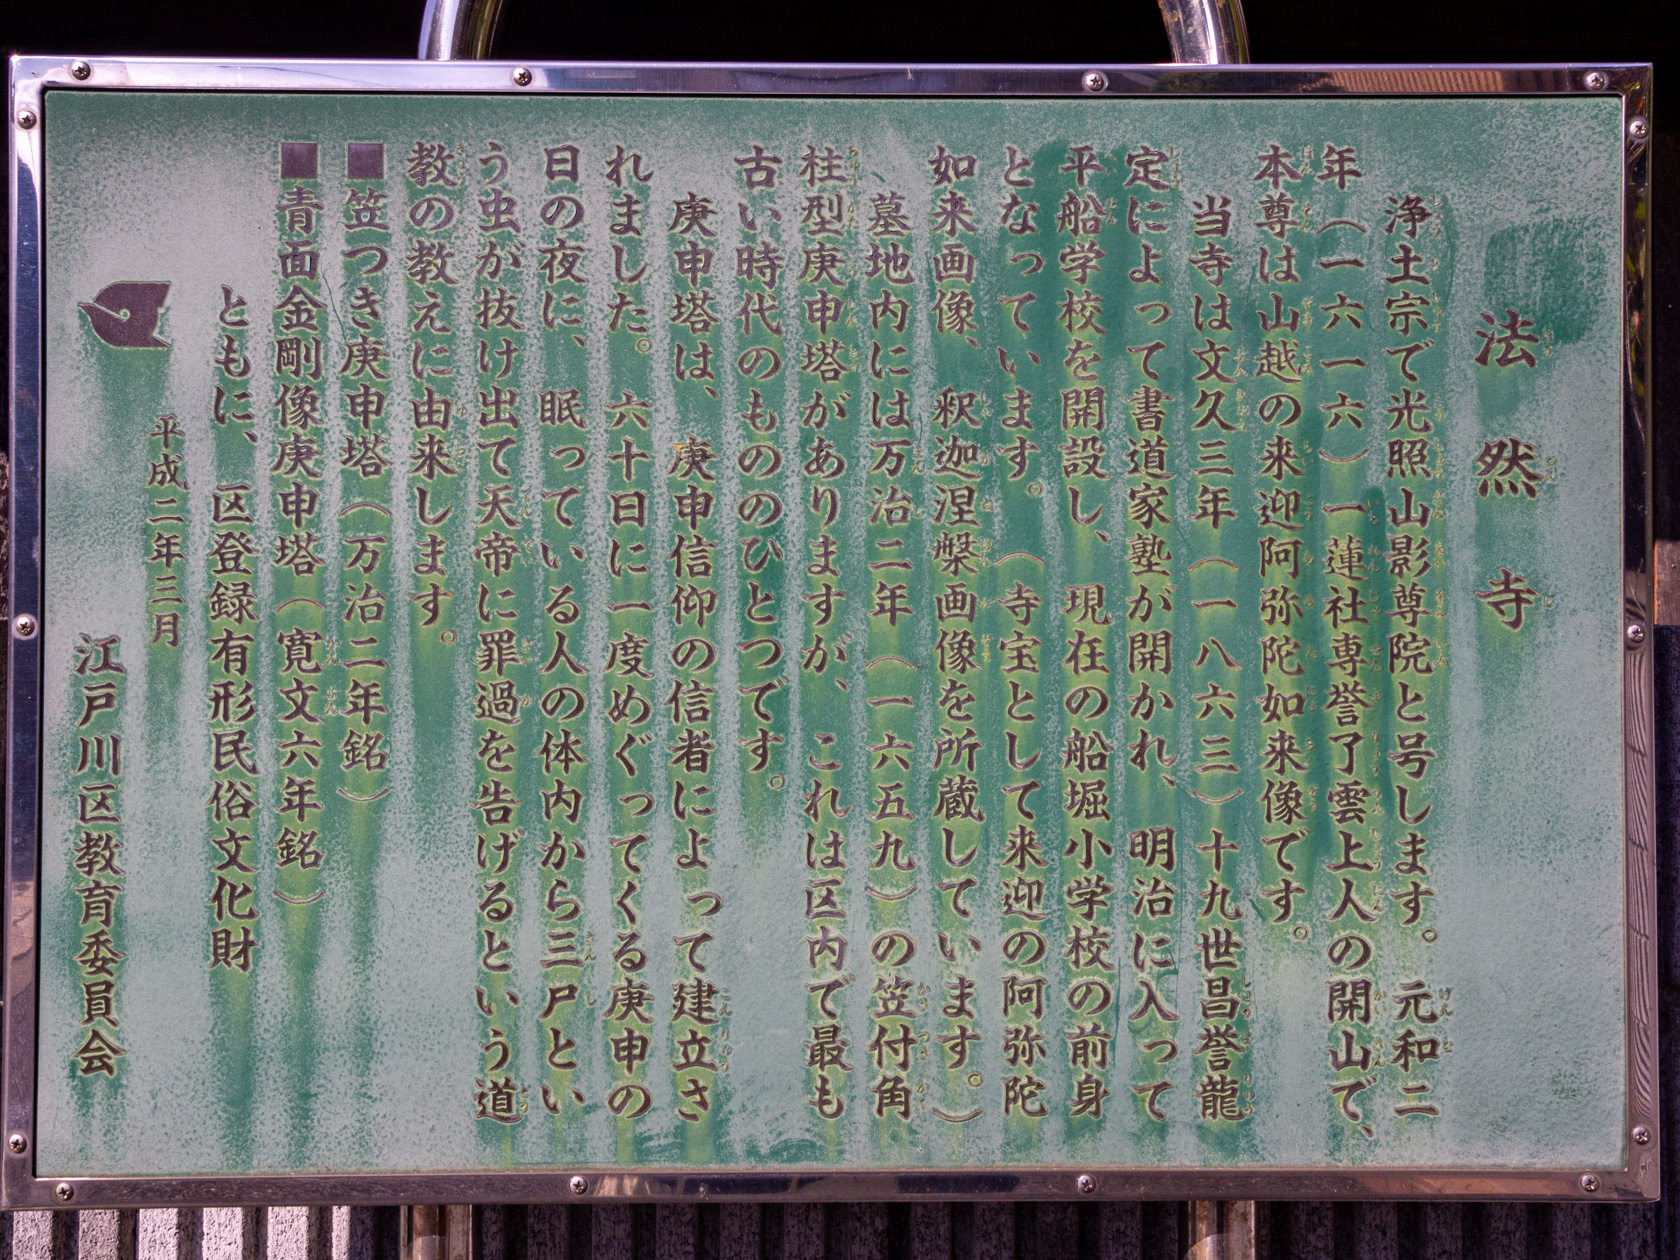 法然寺
浄土宗で光照山影尊院と号します。元和二
年（一六一六）一蓮社専誉了雲上人の開山で、
本尊は山越の来迎阿弥陀如来像です。
当寺は文久三年（一八六三）十九世昌誉龍
定によって書道家塾が開かれ、明治に入って
平船学校を開設し、現在の船堀小学校の前身
となっています。（寺宝として来迎の阿弥陀
如来画像、釈迦涅槃画像を所蔵しています。）
墓地内には万治二年（一六五九）の笠付角
柱型庚申塔がありますが、これは区内で最も
古い時代のもののひとつです。
庚申塔は、庚申信仰の信者によって建立さ
れました。六十日に一度めぐってくる庚申の
日の夜に、眠っている人の体内から三尸とい
う虫が抜け出て天帝に罪過を告げるという道
教の教えに由来します。
■笠つき庚申塔（万治二年銘）
■青面金剛像庚申塔（寛文六年銘）
ともに、区登録有形民俗文化財
平成二年三月
江戸川区教育委員会